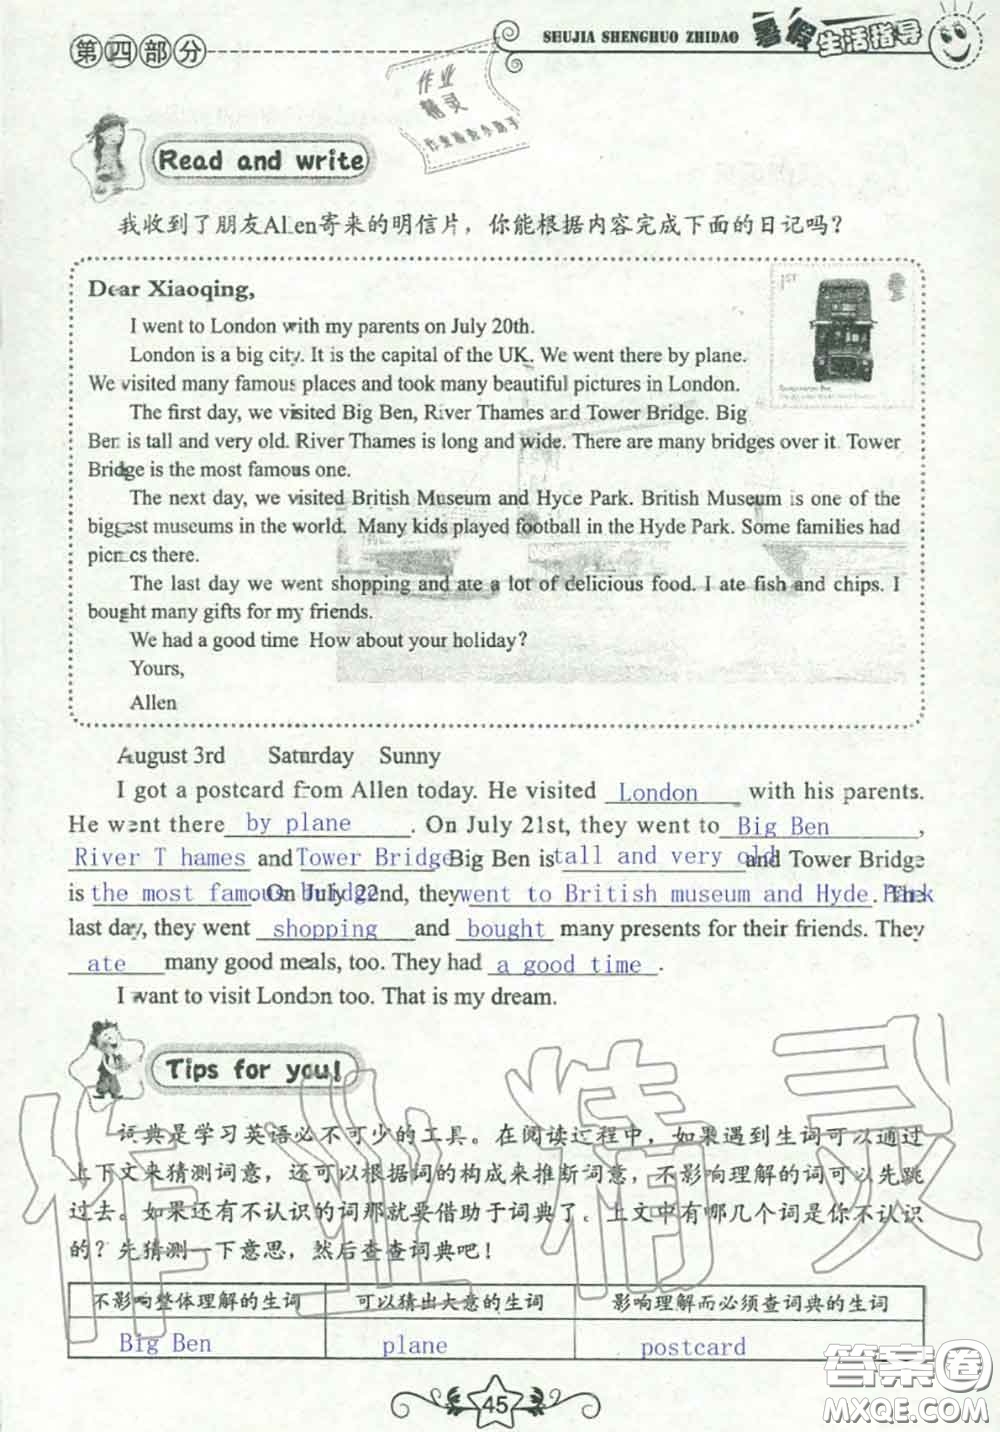 第四部分
SHUJIA SHENGHUO ZHIDAO 暑假生活指导
作业
精灵
Read and write
我收到了朋友Allen寄来的明信片，你能根据内容完成下面的日记吗？
1ST
Dear Xiaoqing,
I went to London with my parents on July 20th.
London is a big city. It is the capital of the UK. We went there by plane.
We visited many famous places and took many beautiful pictures in London.
The first day, we visited Big Ben, River Thames and Tower Bridge. Big
Ben is tall and very old. River Thames is long and wide. There are many bridges over it. Tower
Bridge is the most famous one.
The next day, we visited British Museum and Hyde Park. British Museum is one of the
biggest museums in the world. Many kids played football in the Hyde Park. Some families had
picnics there.
The last day we went shopping and ate a lot of delicious food. I ate fish and chips. I
bought many gifts for my friends.
We had a good time How about your holiday?
Yours,
Allen
August 3rd Saturday Sunny
I got a postcard from Allen today. He visited London with his parents.
He went there by plane. On July 21st, they went to Big Ben,
River T hames and Tower Bridge Big Ben is tall and very old and Tower Bridge
is the most famous bridge On July 22nd, they went to British museum and Hyde Park. The
last day, they went shopping and bought many presents for their friends. They
ate many good meals, too. They had a good time.
I want to visit London too. That is my dream.
Tips for you!
词典是学习英语必不可少的工具。在阅读过程中，如果遇到生词可以通过
上下文来猜测词意，还可以根据词的构成来推断词意，不影响理解的词可以先跳
过去。如果还有不认识的词那就要借助于词典了。上文中有哪几个词是你不认识
的？先猜测一下意思，然后查查词典吧！
不影响整体理解的生词 可以猜出大意的生词 影响理解而必须查词典的生词
Big Ben plane postcard
作业精灵
45
答案卷
MXQE.COM